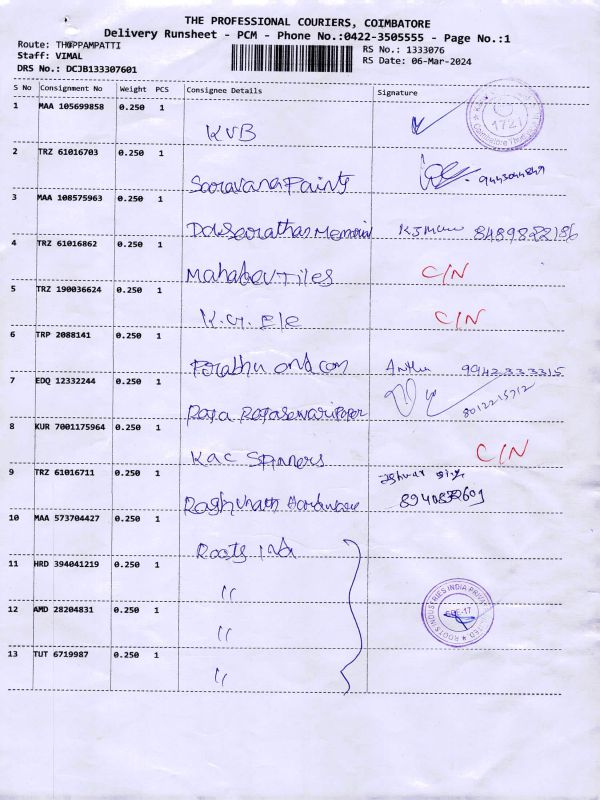 THE PROFESSIONAL COURIERS, COIMBATORE
Delivery Runsheet - PCM - Phone No.:0422-3505555 - Page No.:1
Route: THOPPAMPATTI
Staff: VIMAL
DRS No.: DCJB133307601
RS No.: 1333076
RS Date: 06-Mar-2024
S No Consignment No Weight PCS Consignee Details Signature
1 MAA 105699858 0.250 1
KVB
1721
2 TRZ 61016703 0.250 1
Saravana Paints
3 MAA 108575963 0.250 1
Memorial
4 TRZ 61016862 0.250 1
Mahadev Tiles C/N
5 TRZ 190036624 0.250 1
K.G. Ele C/N
6 TRP 2088141 0.250 1
Prabhu and com 9942333315
7 EDQ 12332244 0.250 1
Raja Rajaeswari Paper 8012215712
8 KUR 7001175964 0.250 1
KAC Spinners C/N
9 TRZ 61016711 0.250 1
Raghunath Hardware
10 MAA 573704427 0.250 1
Roots Ind
11 HRD 394041219 0.250 1
"
12 AMD 28204831 0.250 1
"
ROOTS INDUSTRIES INDIA PRIVATE LIMITED
13 TUT 6719987 0.250 1
"